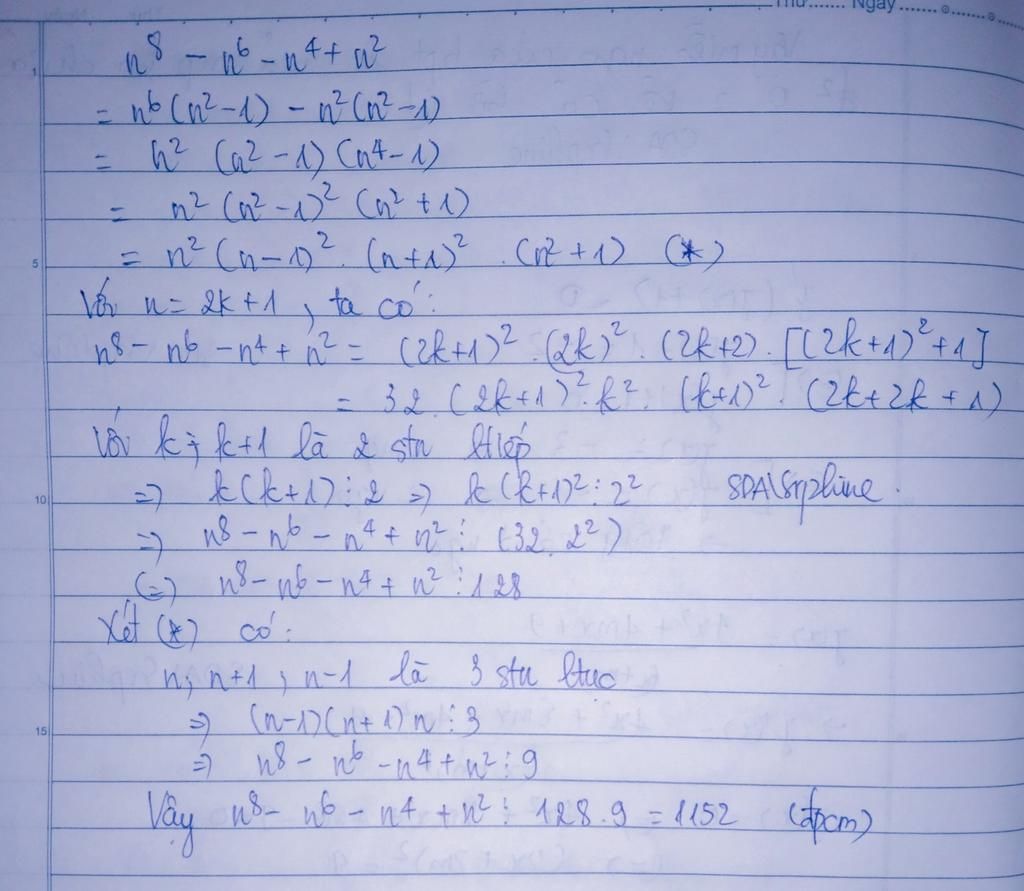 Thứ....... Ngày.......
n⁸ − n⁶ − n⁴ + n²
= n⁶(n² − 1) − n²(n² − 1)
= n² (n² − 1)(n⁴ − 1)
= n² (n² − 1)² (n² + 1)
5 = n² (n − 1)². (n + 1)². (n² + 1) (*)
Với n = 2k + 1, ta có:
n⁸ − n⁶ − n⁴ + n² = (2k+1)². (2k)². (2k+2). [(2k+1)² + 1]
= 32. (2k+1)². k². (k+1)². (2k + 2k + 1)
Với k; k+1 là 2 stn ltiếp
10 => k(k+1) ⋮ 2 => k(k+1)² ⋮ 2² SDA\Srphine.
=> n⁸ − n⁶ − n⁴ + n² ⋮ (32. 2²)
(=) n⁸ − n⁶ − n⁴ + n² ⋮ 128
Xét (*) có:
n, n+1, n−1 là 3 stn ltục
15 => (n−1)(n+1)n ⋮ 3
=> n⁸ − n⁶ − n⁴ + n² ⋮ 9
Vậy n⁸ − n⁶ − n⁴ + n² ⋮ 128.9 = 1152 (đpcm)